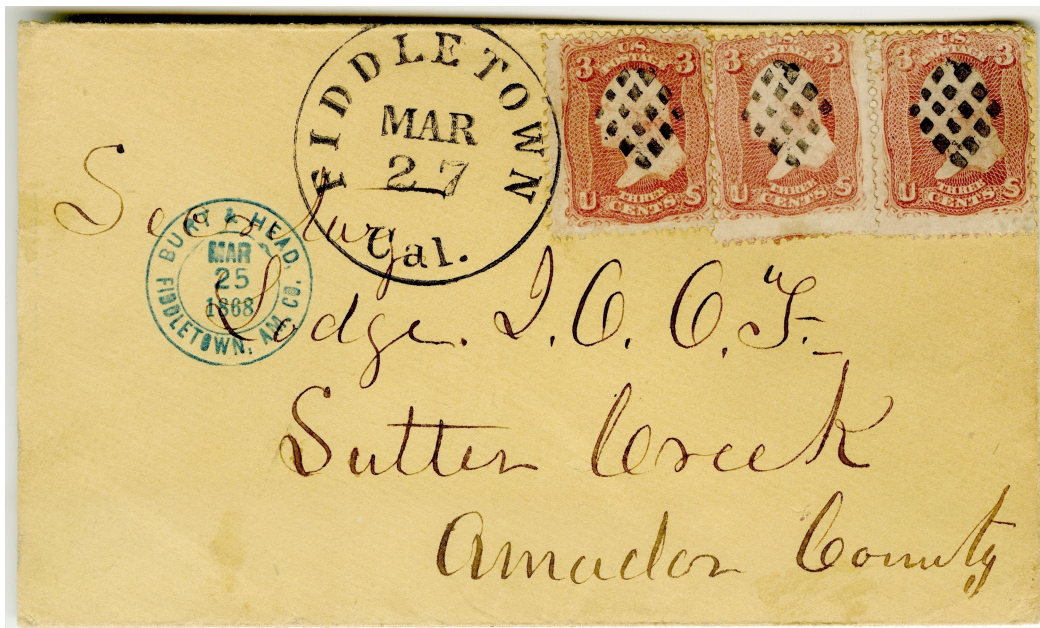 FIDDLETOWN
MAR
27
Cal.
U.S. POSTAGE
3 3
U THREE CENTS S
U.S. POSTAGE
3 3
U THREE CENTS S
U.S. POSTAGE
3 3
U THREE CENTS S
BURT & HEAD,
MAR
25
1868
FIDDLETOWN, AM. CO.
Secretary
Lodge. I. O. O. F.
Sutter Creek
Amador County